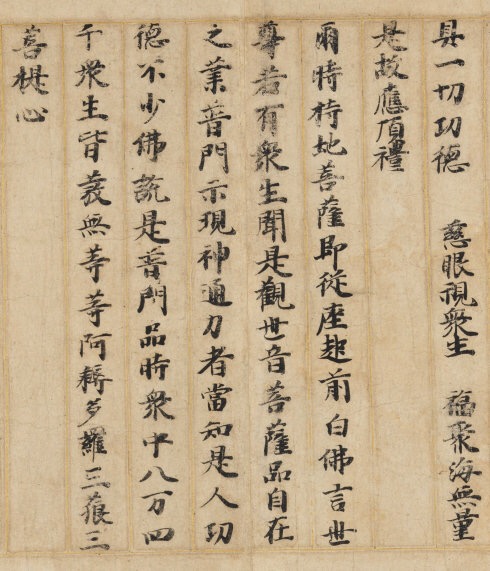 具一切功德　慈眼視衆生　福聚海無量
是故應頂禮
爾時持地菩薩即從座起前白佛言世
尊若有衆生聞是觀世音菩薩品自在
之業普門示現神通力者當知是人功
德不少佛說是普門品時衆中八万四
千衆生皆發無等等阿耨多羅三藐三
菩提心